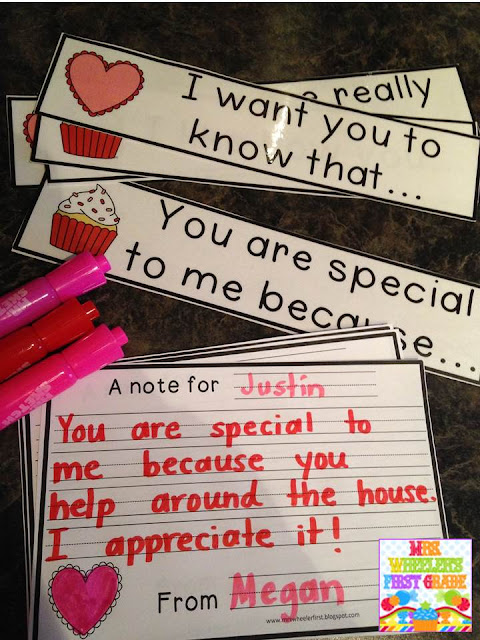 really
I want you to
know that...
You are special
to me because...
A note for Justin
You are special to
me because you
help around the house.
I appreciate it!
From Megan
www.mrswheelerfirst.blogspot.com
MRS.
WHEELER'S
FIRST GRADE